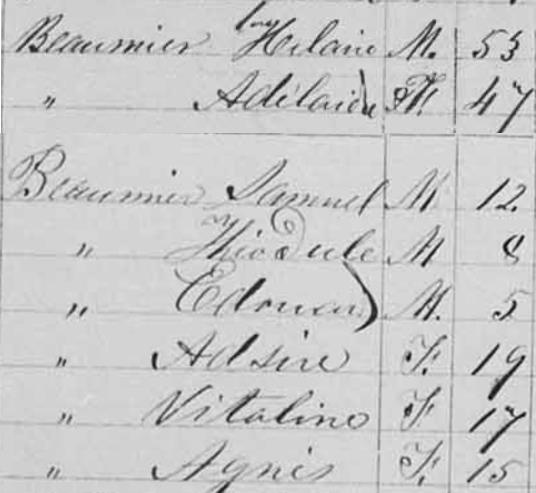 Beaumier Hilaire M. 53
" Adélaide F. 47
Beaumier Samuel M 12
" Théodule M 8
" Edouard M. 5
" Adsire F. 19
" Vitaline F. 17
" Agnès F. 15